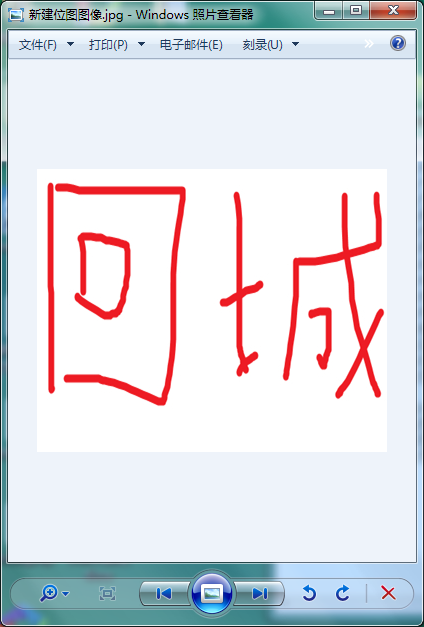 新建位图图像.jpg - Windows 照片查看器
文件(F) 打印(P) 电子邮件(E) 刻录(U) »
回城